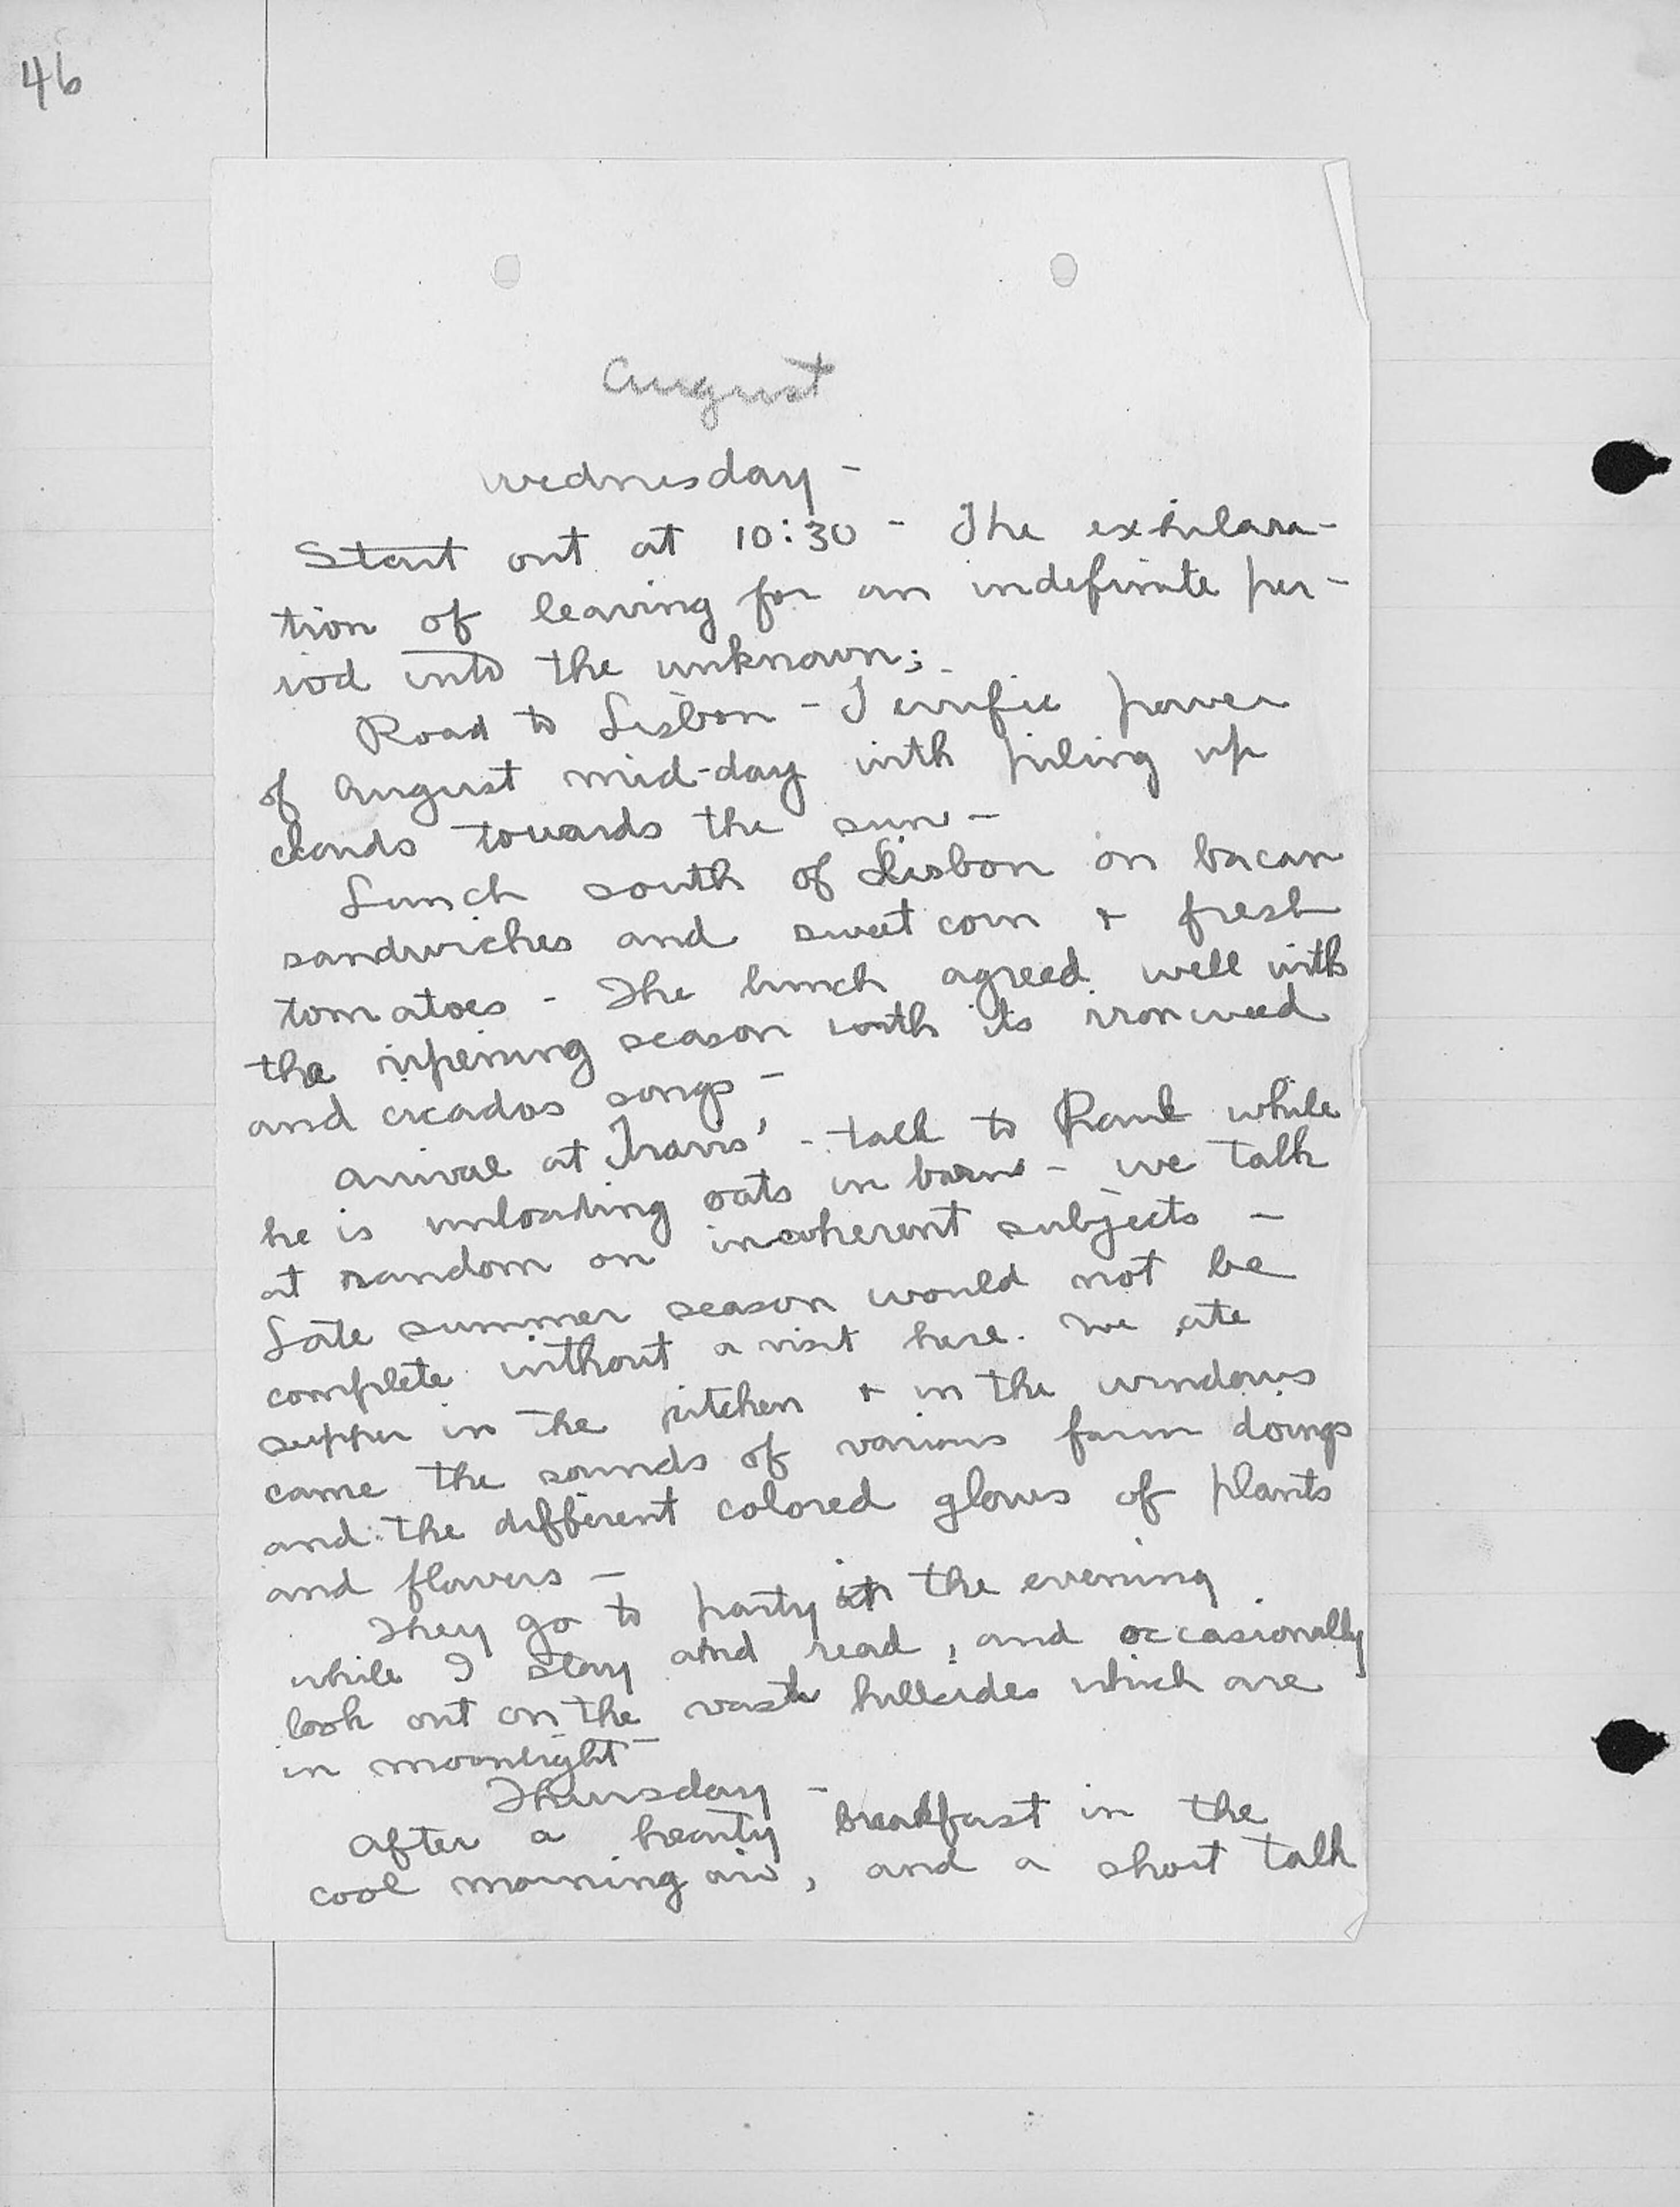 46
August
Wednesday -
Start out at 10:30 - The exhilara-
tion of leaving for an indefinite per-
iod into the unknown;
Road to Lisbon - Terrific power
of August mid-day with piling up
clouds towards the sun -
Lunch south of Lisbon on bacan
sandwiches and sweet corn + fresh
tomatoes - The lunch agreed well with
the ripening season with its ironweed
and cicadas songs -
Arrival at Travis' - talk to Paul while
he is unloading oats in barn - we talk
at random on incoherent subjects -
Late summer season would not be
complete without a visit here. We ate
supper in the kitchen + in the windows
came the sounds of various farm doings
and the different colored glows of plants
and flowers -
They go to party in the evening
while I stay and read, and occasionally
look out on the vast hillsides which are
in moonlight -
Thursday -
After a hearty breakfast in the
cool morning air, and a short talk